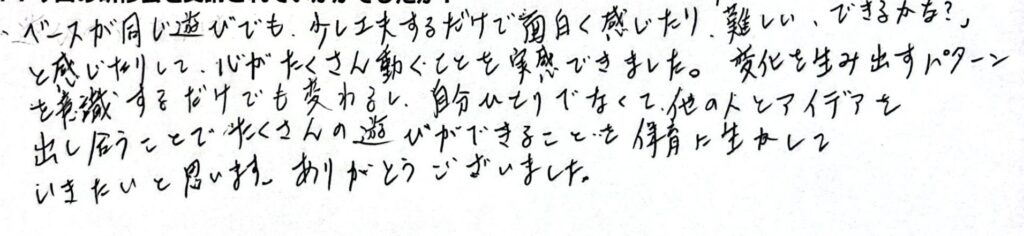 ベースが同じ遊びでも、少し工夫するだけで面白く感じたり、難しい、できるかな？、
と感じたりして、心がたくさん動くことを実感できました。変化を生み出すパターン
を意識するだけでも変わるし、自分ひとりでなくて、他の人とアイデアを
出し合うことでたくさんの遊びができることを保育に生かして
いきたいと思います。ありがとうございました。